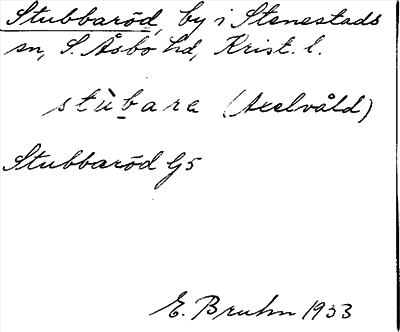 Stubbaröd, by i Stenestads
sn, S. Åsbo hd, Krist. l.
stùbara (Axelvåld)
Stubbaröd G5
E. Bruhn 1933